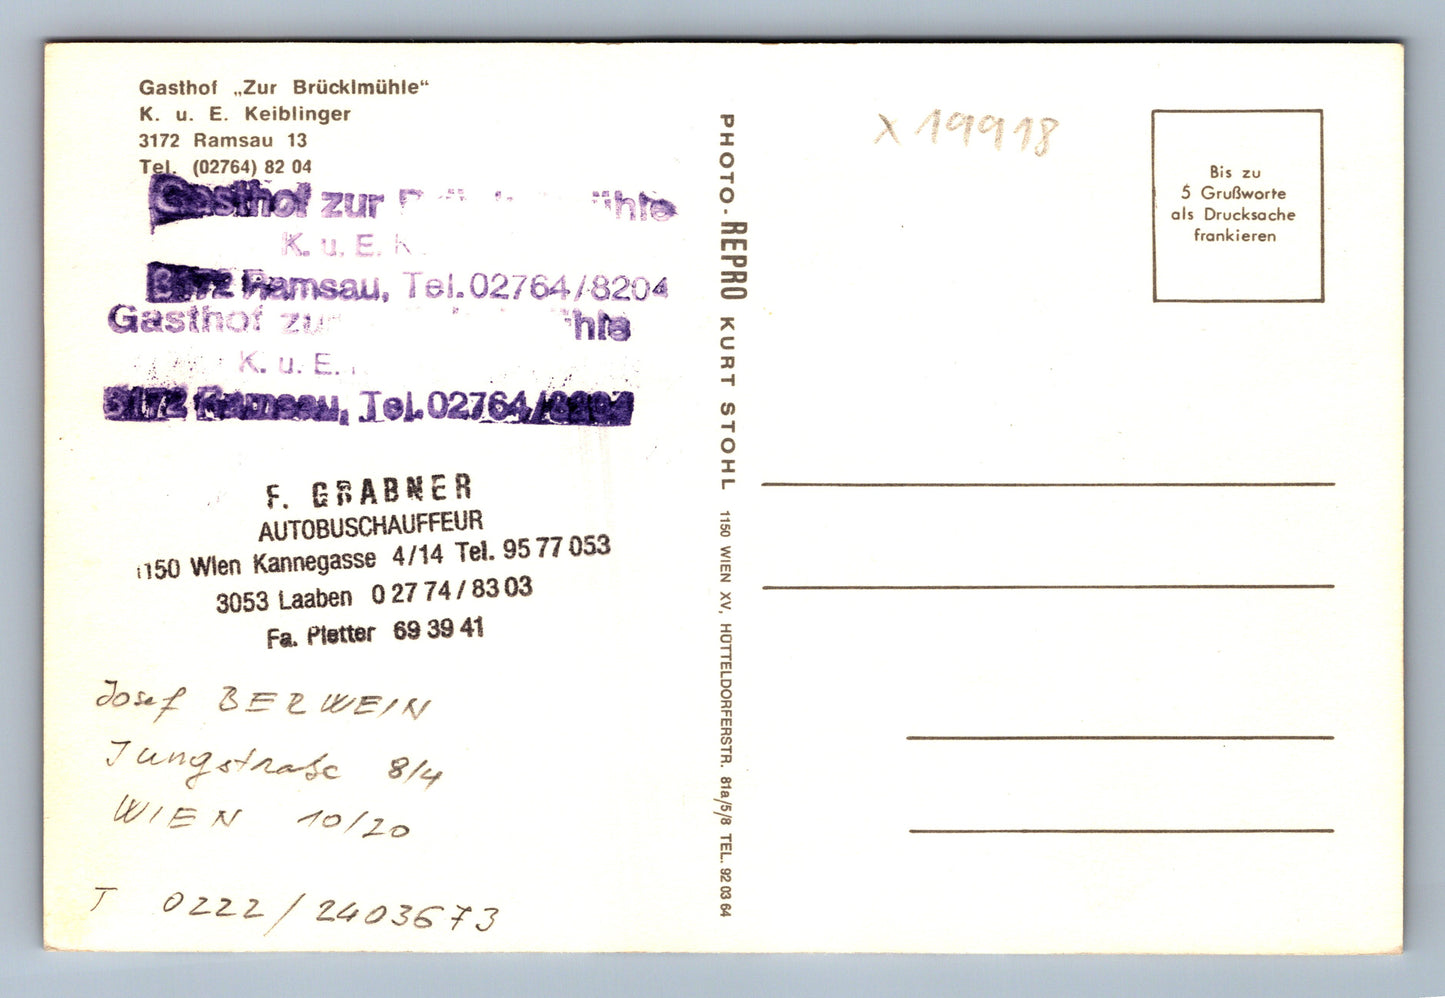 Gasthof „Zur Brücklmühle“
K. u. E. Keiblinger
3172 Ramsau 13
Tel. (02764) 82 04
Gasthof zur
K. u. E. K
3172 Ramsau, Tel. 02764/8204
Gasthof zur
K. u. E.
3172 Ramsau, Tel. 02764/8204
F. GRABNER
AUTOBUSCHAUFFEUR
1150 Wien Kannegasse 4/14 Tel. 95 77 053
3053 Laaben 0 27 74 / 83 03
Fa. Pletter 69 39 41
Josef BERWEIN
Jungstraße 8/4
WIEN 10/20
T 0222/2403673
PHOTO-REPRO KURT STOHL 1150 WIEN XV, HÜTTELDORFERSTR. 81a/5/8 TEL. 92 03 64
X 19918
Bis zu
5 Grußworte
als Drucksache
frankieren